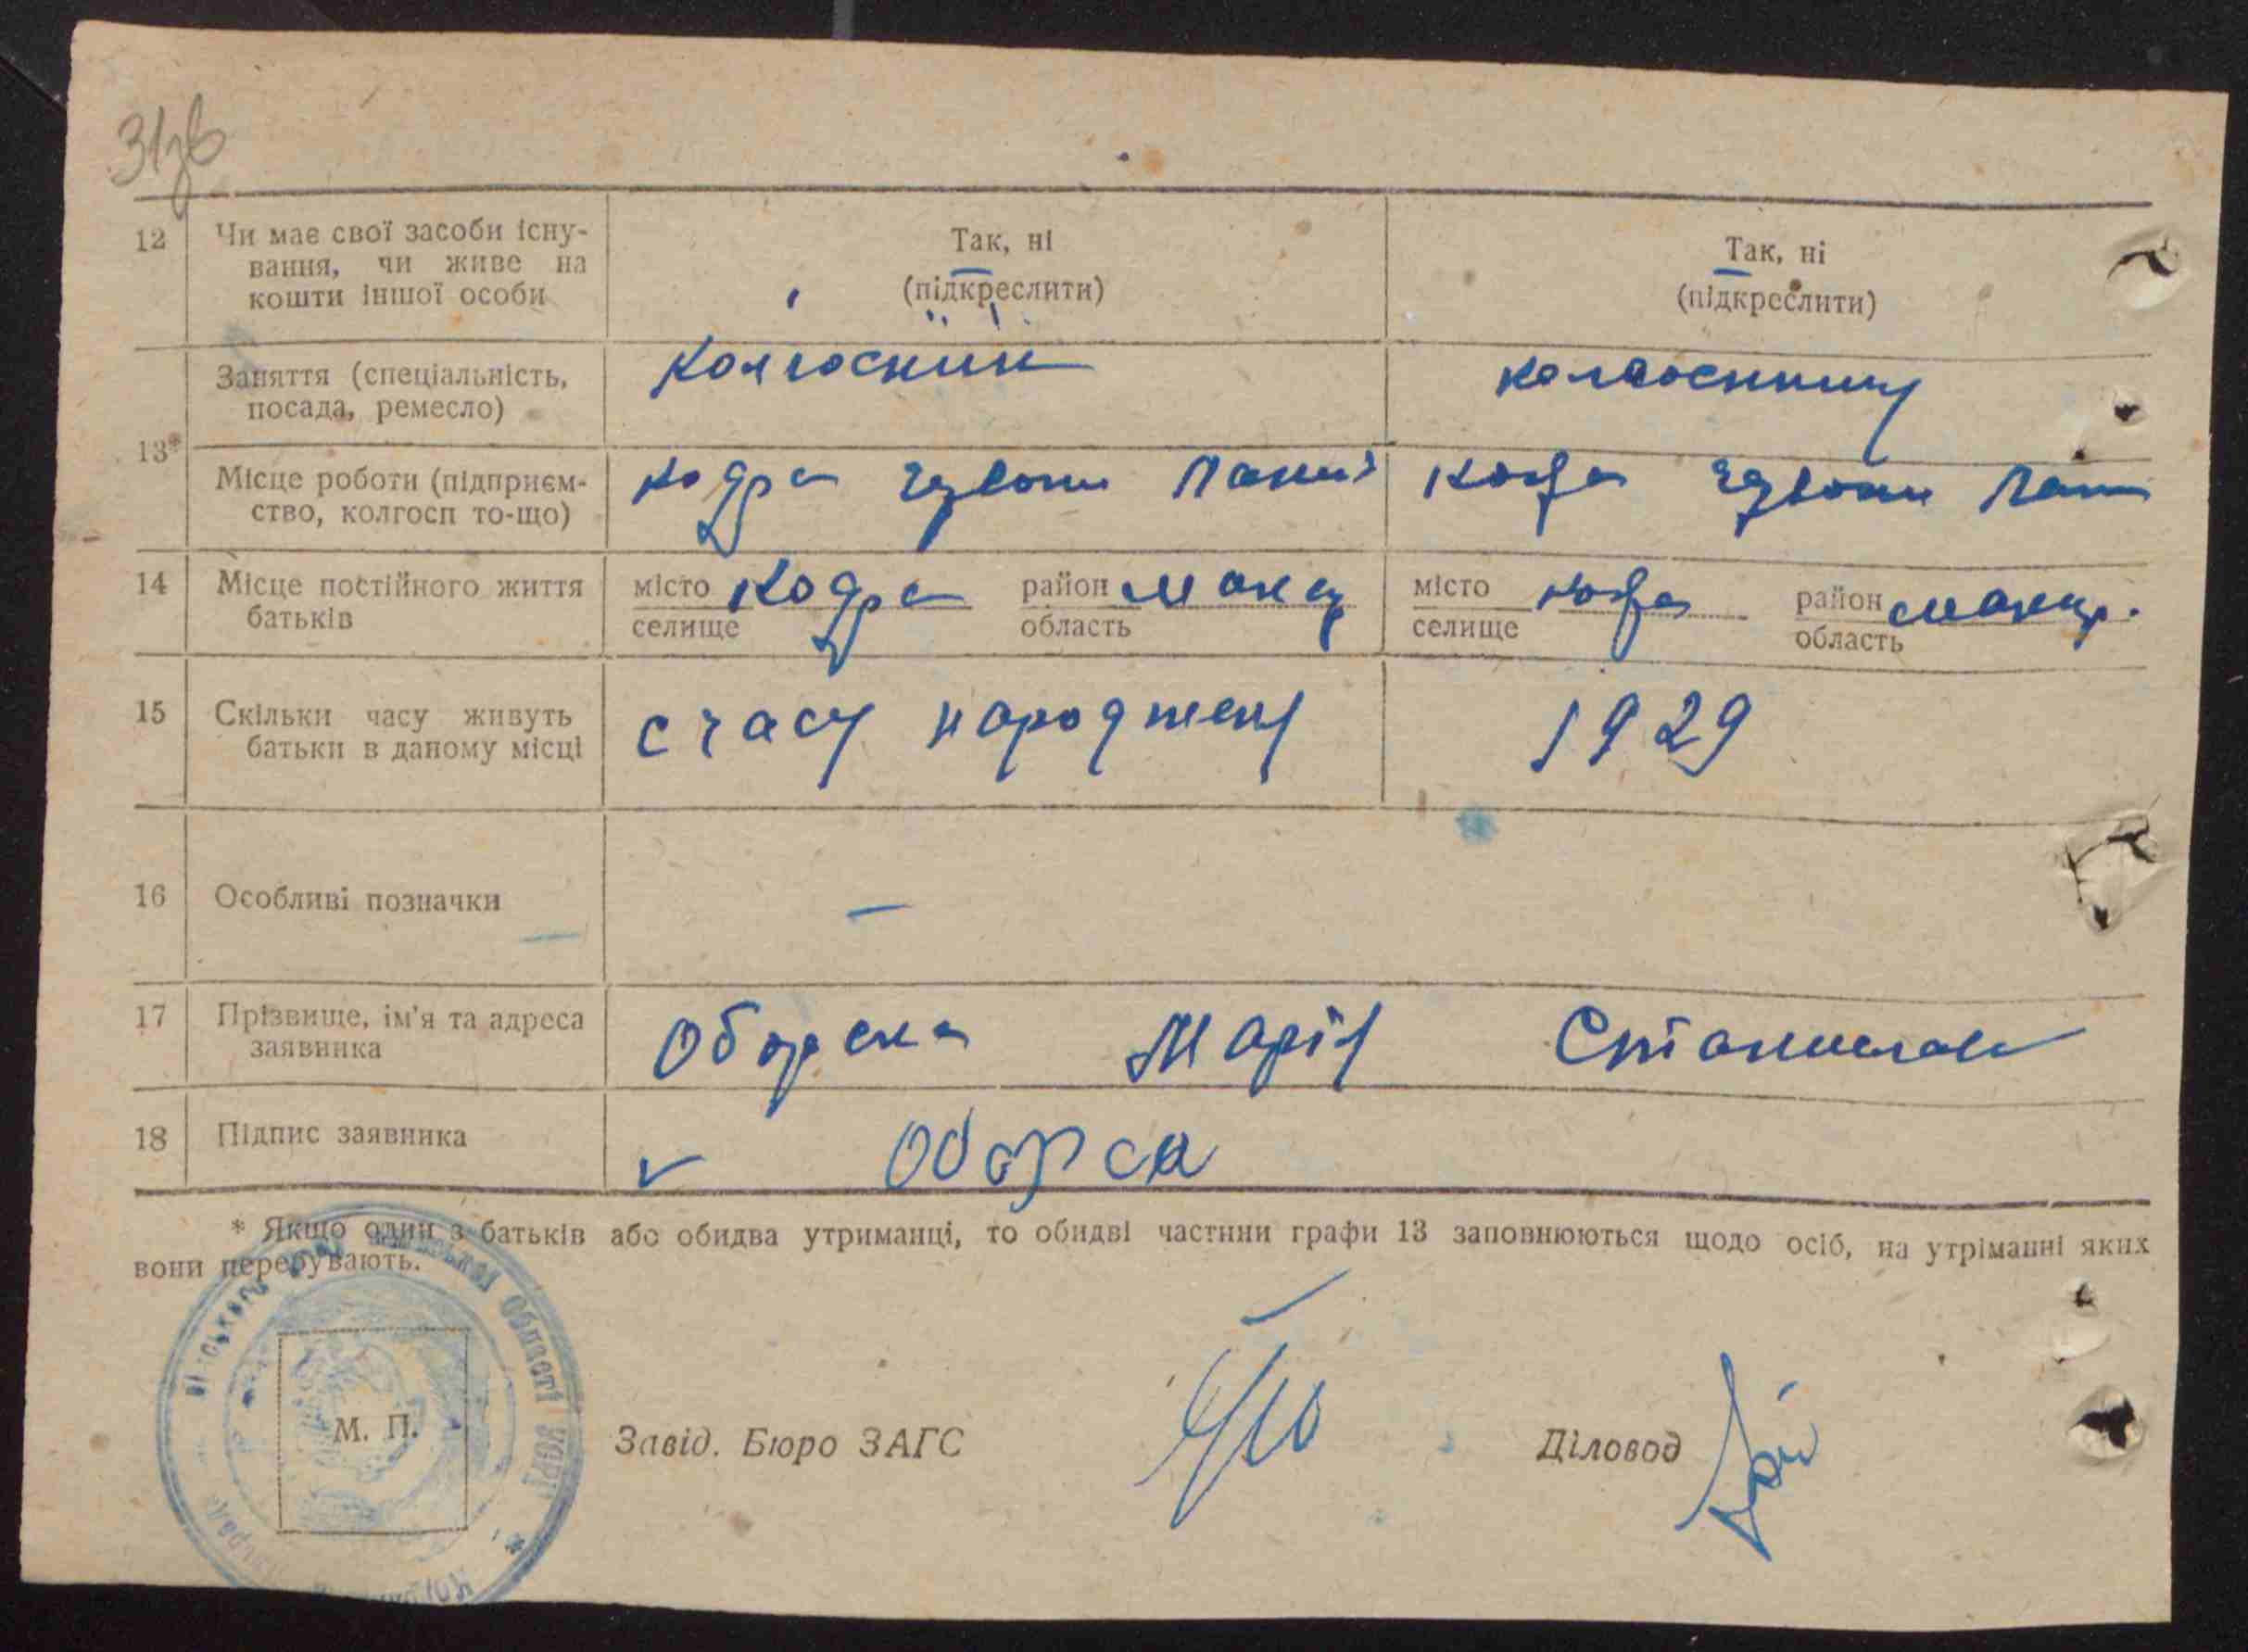 12 Чи має свої засоби існу-
вання, чи живе на
кошти іншої особи
Так, ні
(підкреслити)
Так, ні
(підкреслити)
13*
Заняття (спеціальність,
посада, ремесло)
колгоспник
колгоспниця
Місце роботи (підприєм-
ство, колгосп то-що)
Кодра
Кодра
14 Місце постійного життя
батьків
місто Кодра район Мака
селище область
місто Кодра район Макар.
селище область
15 Скільки часу живуть
батьки в даному місці
с часу народжен
1929
16 Особливі позначки
—
17 Прізвище, ім'я та адреса
заявника
Оборска Марія Станислав
18 Підпис заявника
Оборса
* Якщо один з батьків або обидва утриманці, то обидві частини графи 13 заповнюються щодо осіб, на утріманні яких
вони перебувають.
області УСРР
М. П.
Завід. Бюро ЗАГС
Діловод